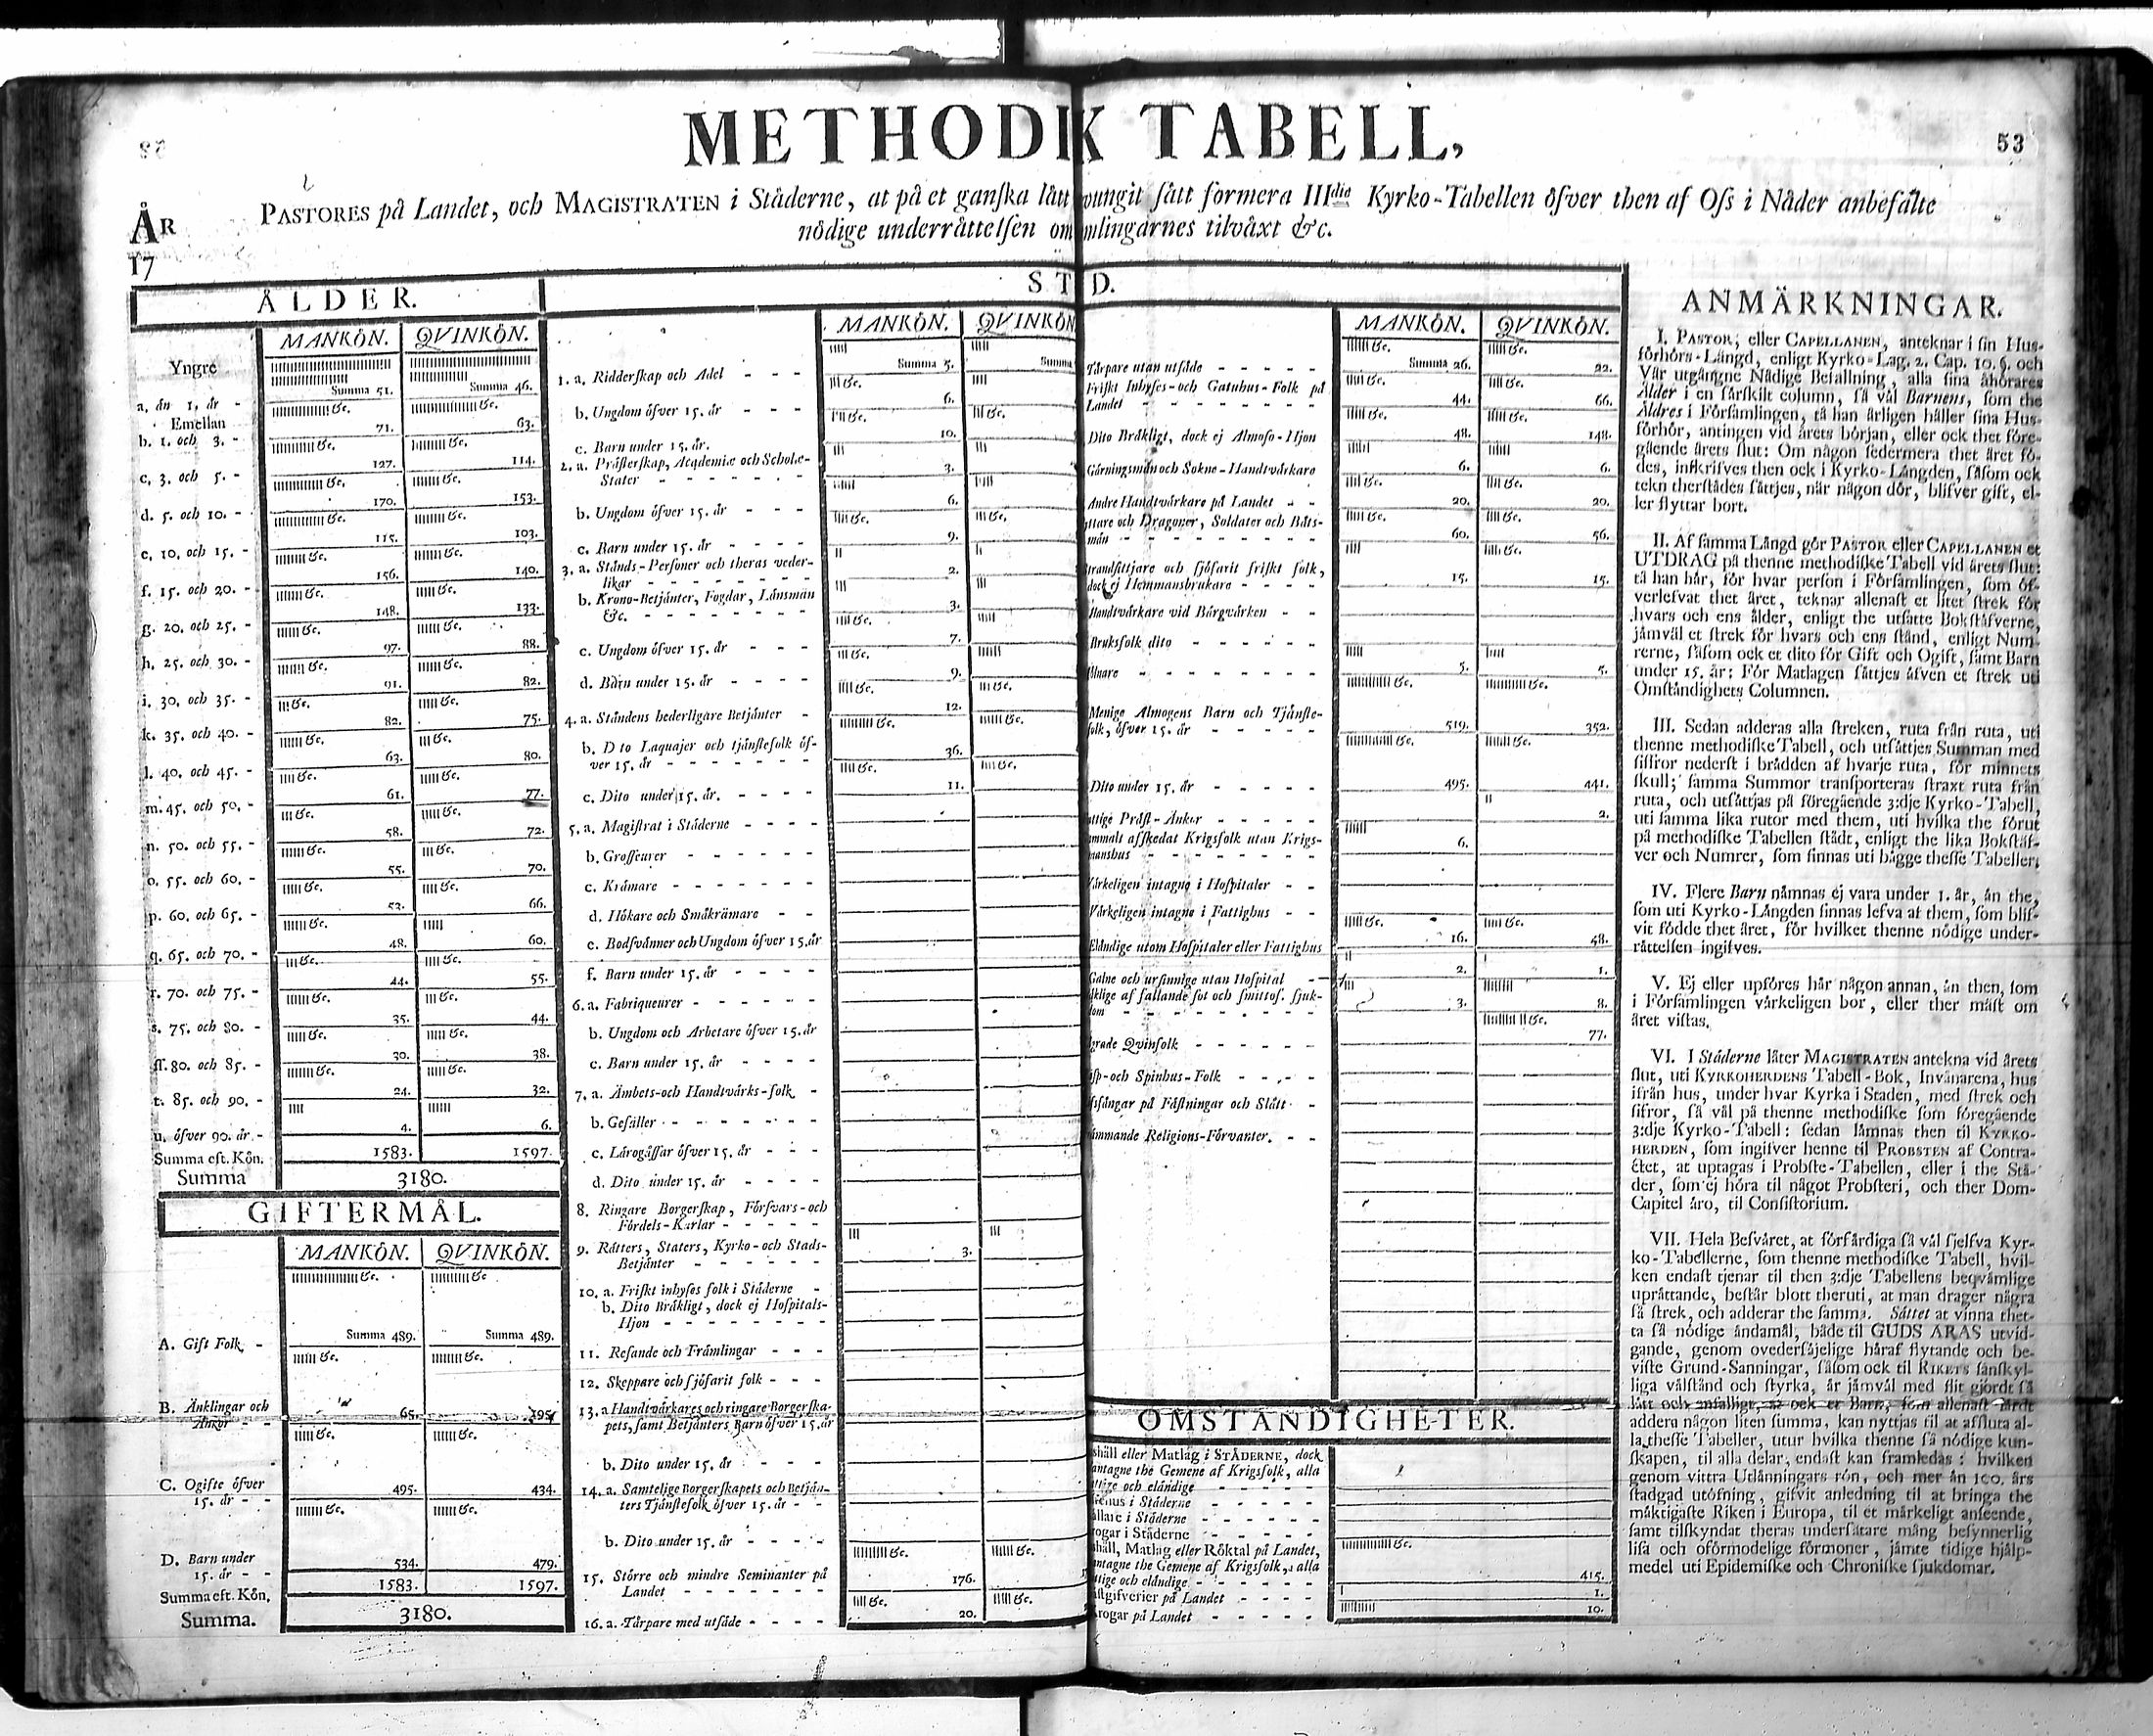 METHODK TABELL,
53
ÅR
17
PASTORES på Landet, och MAGISTRATEN i Ståderne, at på et ganska lått vungit sått formera IIIdie Kyrko-Tabellen öfver then af Oss i Nåder anbefalte
nödige underråttelsen om mlingarnes tilvåxt &c.
ÅLDER.
MANKÖN. QVINKÖN.
Yngre
Summa 51. Summa 46.
a, ån 1, år -
Emellan
71. 63.
b. 1. och 3. -
127. 114.
c. 3. och 5. -
170. 153.
d. 5. och 10. -
115. 103.
e, 10, och 15. -
156. 140.
f. 15. och 20. -
148. 133.
g. 20, och 25. -
97. 88.
h, 25. och 30. -
91. 82.
i. 30, och 35. -
82. 75.
k. 35. och 40. -
63. 80.
l. 40. och 45. -
61. 77.
m. 45. och 50. -
58. 72.
n. 50. och 55. -
55. 70.
o. 55. och 60. -
53. 66.
p. 60. och 65. -
48. 60.
q. 65. och 70. -
44. 55.
r. 70. och 75. -
35. 44.
s. 75. och 80. -
30. 38.
ſſ. 80. och 85. -
24. 32.
t. 85. och 90. -
4. 6.
u. öfver 90. år. -
Summa eft. Kön. 1583. 1597.
Summa 3180.
GIFTERMÅL.
MANKÖN. QVINKÖN.
Summa 489. Summa 489.
A. Gift Folk -
B. Änklingar och
Änkor - -
65. 195.
C. Ogifte öfver
15. år - -
495. 434.
D. Barn under
15. år - -
534. 479.
Summa eft. Kön, 1583. 1597.
Summa. 3180.
ST
MANKÖN. QVINKÖN
Summa 5. Summa
1. a. Ridderskap och Adel - - -
6.
b. Ungdom öfver 15. år - - -
10.
c. Barn under 15. år.
2. a. Pråsterskap, Academiæ och Scholæ-
Stater - - - - - - -
3.
6.
b. Ungdom öfver 15. år - - -
9.
c. Barn under 15. år - - - -
3. a. Stånds-Personer och theras veder-
likar - - - - - - -
2.
b. Krono-Betjånter, Fogdar, Lånsmån
&c. - - - - - - - -
3.
7.
c. Ungdom öfver 15. år - - -
9.
d. Barn under 15. år - - - -
12.
4. a. Ståndens hederligare Betjånter -
b. Dito Laquajer och tjånstefolk öf-
ver 15. år - - - - - - -
36.
11.
c. Dito under 15. år. - - - -
5. a. Magistrat i Ståderne - - - -
b. Grosseurer - - - - - -
c. Kråmare - - - - - - -
d. Hökare och Småkråmare - -
e. Bodsvånner och Ungdom öfver 15. år
f. Barn under 15. år - - - -
6. a. Fabriqueurer - - - - - -
b. Ungdom och Arbetare öfver 15. år
c. Barn under 15. år - - - -
7. a. Åmbets-och Handtvårks-folk -
b. Gesåller - - - - - - -
c. Lårogåssar öfver 15. år - - -
d. Dito under 15. år - - - -
8. Ringare Borgerskap, Försvars-och
Fördels-Karlar - - - - -
9. Råtters, Staters, Kyrko-och Stads-
Betjånter - - - - - -
3.
10. a. Friskt inhyses folk i Ståderne -
b. Dito Bråkligt, dock ej Hospitals-
Hjon - - - - - - - -
11. Resande och Fråmlingar - - -
12. Skeppare och sjöfarit folk - - -
13. a Handtvårkares och ringare Borgerska-
pets, samt Betjånters Barn öfver 15. år
b. Dito under 15. år - - - -
14. a. Samtelige Borgerskapets och Betjån-
ters Tjånstefolk öfver 15. år - -
b. Dito under 15. år - - - -
15. Större och mindre Seminanter på
Landet - - - - - - -
176.
16. a. Tårpare med utsåde - - - -
20.
D.
MANKÖN. QVINKÖN.
Tårpare utan utsåde - - - - - Summa 26. 22.
Friskt Inhyses-och Gatuhus-Folk på
Landet - - - - - - - - 44. 66.
Dito Bråkligt, dock ej Almoso-Hjon 48. 148.
Gårningsmån och Sokne-Handtvårkare 6. 6.
Andre Handtvårkare på Landet - - 20. 20.
ttare och Dragoner, Soldater och Båts-
mån - - - - - - - - 60. 56.
trandsittjare och sjöfarit friskt folk,
dock ej Hemmansbrukare - - - 15. 15.
Handtvårkare vid Bårgvårken - -
Bruksfolk dito - - - - - -
lnare - - - - - - - - 5. 5.
Menige Almogens Barn och Tjånste-
folk, öfver 15. år - - - - - 519. 352.
Dito under 15. år - - - - - 495. 441.
ttige Pråst-Änkor - - - - - 2.
ammalt afskedat Krigsfolk utan Krigs-
manshus - - - - - - - 6.
Vårkeligen intagne i Hospitaler - -
Vårkeligen intagne i Fattighus - -
Elåndige utom Hospitaler eller Fattighus 16. 48.
Galne och ursinnige utan Hospital - 2. 1.
klige af fallande sot och smittos. sjuk-
dom - - - - - - - - 3. 8.
grade Qvinfolk - - - - - - 77.
ssp-och Spinhus-Folk - - - -
sfångar på Fåstningar och Slått -
ammande Religions-Förvanter. - -
OMSTÄNDIGHETER.
shåll eller Matlag i STÅDERNE, dock
antagne the Gemene af Krigsfolk, alla
ttige och elåndige - - - - -
ehus i Ståderne - - - - -
ållare i Ståderne - - - - -
rogar i Ståderne - - - - -
håll, Matlag eller Röktal på Landet,
antagne the Gemene af Krigsfolk, alla
ttige och elåndige - - - - - 415.
stgifverier på Landet - - - - 1.
rogar på Landet - - - - - 10.
ANMÄRKNINGAR.
I. PASTOR, eller CAPELLANEN, anteknar i sin Hus-
förhörs-Långd, enligt Kyrko-Lag. 2. Cap. 10. §. och
Vår utgångne Nådige Befallning, alla sina åhörares
Ålder i en sårskilt column, så vål Barnens, som the
Åldres i Församlingen, tå han årligen håller sina Hus-
förhör, antingen vid årets början, eller ock thet före-
gående årets slut: Om någon sedermera thet året fö-
des, inskrifves then ock i Kyrko-Långden, såsom ock
tekn therstådes såttjes, når någon dör, blifver gift, el-
ler flyttar bort.
II. Af samma Långd gör PASTOR eller CAPELLANEN et
UTDRAG på thenne methodiske Tabell vid årets slut:
tå han hår, för hvar person i Församlingen, som öf-
verlefvat thet året, teknar allenast et litet strek för
hvars och ens ålder, enligt the utsatte Bokståfverne,
jåmvål et strek för hvars och ens stånd, enligt Num-
rerne, såsom ock et dito för Gift och Ogift, samt Barn
under 15. år: För Matlagen såttjes åfven et strek uti
Omståndighets Columnen.
III. Sedan adderas alla streken, ruta från ruta, uti
thenne methodiske Tabell, och utsåttjes Summan med
siffror nederst i brådden af hvarje ruta, för minnets
skull; samma Summor transporteras straxt ruta från
ruta, och utsåttjas på föregående 3:dje Kyrko-Tabell,
uti samma lika rutor med them, uti hvilka the förut
på methodiske Tabellen stådt, enligt the lika Bokståf-
ver och Numrer, som finnas uti bågge thesse Tabeller.
IV. Flere Barn nåmnas ej vara under 1. år, ån the,
som uti Kyrko-Långden finnas lefva af them, som blif-
vit födde thet året, för hvilket thenne nödige under-
råttelsen ingifves.
V. Ej eller upföres hår någon annan, ån then, som
i Församlingen vårkeligen bor, eller ther måst om
året vistas.
VI. I Ståderne låter MAGISTRATEN antekna vid årets
slut, uti KYRKOHERDENS Tabell-Bok, Invånarena, hus
ifrån hus, under hvar Kyrka i Staden, med strek och
sifror, så vål på thenne methodiske som föregående
3:dje Kyrko-Tabell: sedan låmnas then til KYRKO-
HERDEN, som ingifver henne til PROBSTEN af Contra-
ctet, at uptagas i Probste-Tabellen, eller i the Ståder,
der, som ej höra til något Probsteri, och ther Dom-
Capitel åro, til Consistorium.
VII. Hela Besvåret, at förfårdiga så vål sjelfva Kyr-
ko-Tabellerne, som thenne methodiske Tabell, hvil-
ken endast tjenar til then 3:dje Tabellens beqvåmlige
upråttande, består blott theruti, at man drager några
så strek, och adderar the samma. Såttet at vinna thet-
ta så nödige åndamål, både til GUDS ÄRAS utvid-
gande, genom ovedersåjelige håraf flytande och be-
viste Grund-Sanningar, såsom ock til RIKETS sanskyl-
liga vålstånd och styrka, år jåmvål med flit gjordt så
lått och enfalligt, at ock et Barn, som allenast lårdt
addera någon liten summa, kan nyttjas til at afsluta al-
la thesse Tabeller, utur hvilka thenne så nödige kun-
skapen, til alla delar, endast kan framledas: hvilken
genom vittra Utlånningars rön, och mer ån 100. års
stadgad utöfning, gifvit anledning til at bringa the
måktigaste Riken i Europa, til et mårkeligt anseende,
samt tilskyndat theras undersåtare mång besynnerlig
lisa och oförmodelige förmoner, jåmte tidige hjålp-
medel uti Epidemiske och Chroniske sjukdomar.